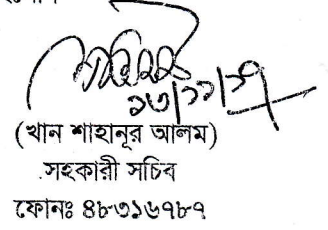 ১৩/১১/১৭
(খান শাহানূর আলম)
সহকারী সচিব
ফোনঃ ৪৮৩১৬৭৮৭